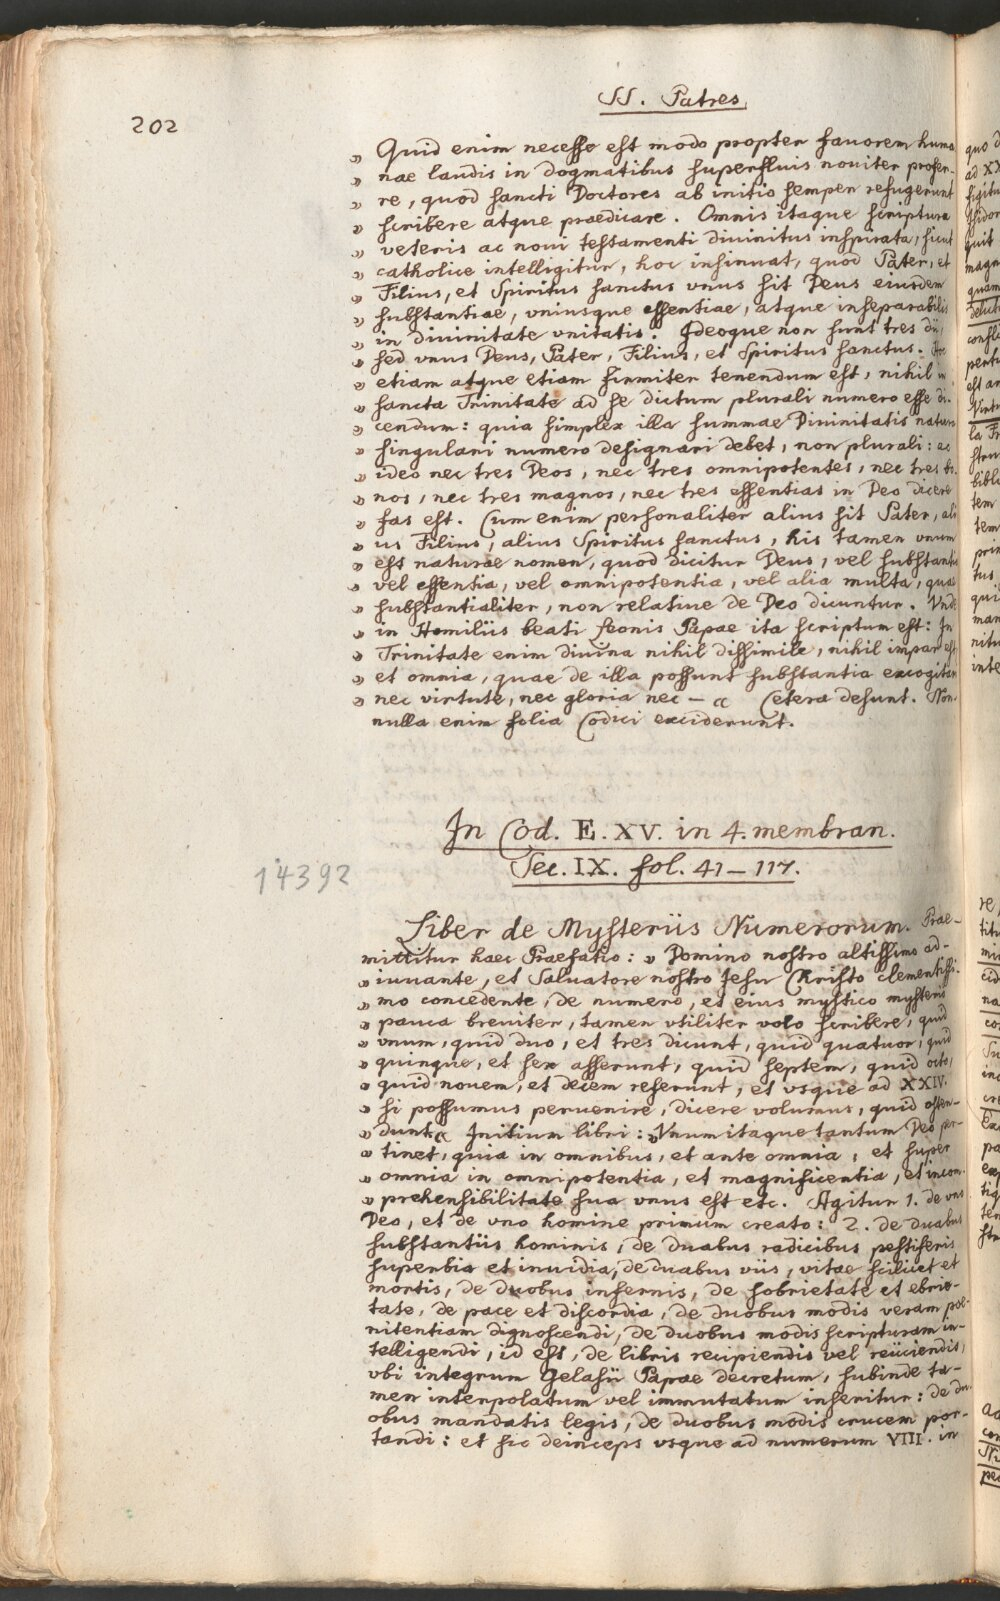 202
SS. Patres
" Quid enim necesse est modo propter fauorem huma
" nae laudis in dogmatibus superfluis nouiter profer-
" re, quod sancti Doctores ab initio semper refugerunt
" scribere atque praedicare. Omnis itaque scriptura
" veteris ac noui testamenti diuinitus inspirata, sicut
" catholice intelligitur, hoc insinuat, quod Pater, et
" Filius, et Spiritus sanctus vnus sit Deus eiusdem
" substantiae, vniusque essentiae, atque inseparabilis
" in diuinitate vnitatis. Ideoque non sunt tres dii,
" sed vnus Deus, Pater, Filius, et Spiritus sanctus. Hoc
" etiam atque etiam firmiter tenendum est, nihil in
" sancta Trinitate ad se dictum plurali numero esse di-
" cendum: quia simplex illa summae Diuinitatis natura
" singulari numero designari debet, non plurali: ac
" ideo nec tres Deos, nec tres omnipotentes, nec tres bo-
" nos, nec tres magnos, nec tres essentias in Deo dicere
" fas est. Cum enim personaliter alius sit Pater, ali
" us Filius, alius Spiritus sanctus, his tamen vnum
" est naturae nomen, quod dicitur Deus, vel substantia
" vel essentia, vel omnipotentia, vel alia multa, quae
" substantialiter, non relatiue de Deo dicuntur. Vnde
" in Homiliis beati Leonis Papae ita scriptum est: In
" Trinitate enim diuina nihil dissimile, nihil impar est
" et omnia, quae de illa possunt substantia excogitari
" nec virtute, nec gloria nec - & Cetera desunt. Non-
nulla enim folia Codici exciderunt.
In Cod. E. XV. in 4. membran.
Sec. IX. fol. 41-117.
14392
Liber de Mysteriis Numerorum. Prae-
mittitur haec Praefatio: " Domino nostro altissimo ad-
" iuuante, et Saluatore nostro Jesu Christo clementissi-
" mo concedente, de numero, et eius mystico mysterio
" pauca breuiter, tamen vtiliter volo scribere, quid
" vnum, quid duo, et tres dicunt, quid quatuor, quid
" quinque, et sex asserunt, quid septem, quid octo,
" quid nouem, et decem referunt, et vsque ad XXIV.
" si possumus peruenire, dicere volumus, quid osten-
" dunt & Initium libri: " Vnum itaque tantum Deo per-
" tinet, quia in omnibus, et ante omnia, et super
" omnia in omnipotentia, et magnificentia, et incom-
" prehensibilitate sua vnus est etc. Agitur 1. de vno
Deo, et de vno homine primum creato: 2. de duabus
substantiis hominis, de duabus radicibus pestiferis
superbia et inuidia, de duabus viis, vitae scilicet et
mortis, de duobus infernis, de sobrietate et ebrie-
tate, de pace et discordia, de duobus modis veram poe-
nitentiam dignoscendi, de duobus modis scripturam in-
telligendi, id est, de libris recipiendis vel reiiciendis,
vbi integrum Gelasii Papae decretum, subinde ta-
men interpolatum vel immutatum inseritur: de du-
obus mandatis legis, de duobus modis crucem por-
tandi: et sic deinceps vsque ad numerum VIII. in